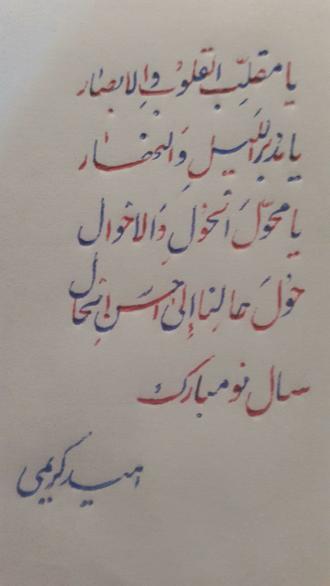 یا مقلّب القلوب و الابصار
یا مدبّر اللیل و النهار
یا محوّل الحَول و الاحوال
حوّل حالنا إلیٰ احسن الحال
سال نو مبارک
امید کریمی